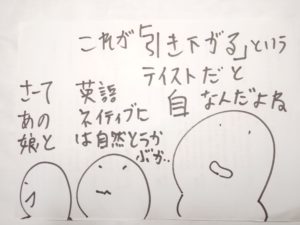 これが「引き下がる」という
テイストだと
自 なんだよね
英語
ネイティブに
は自然とうか
ぶが..
さーて
あの
娘と